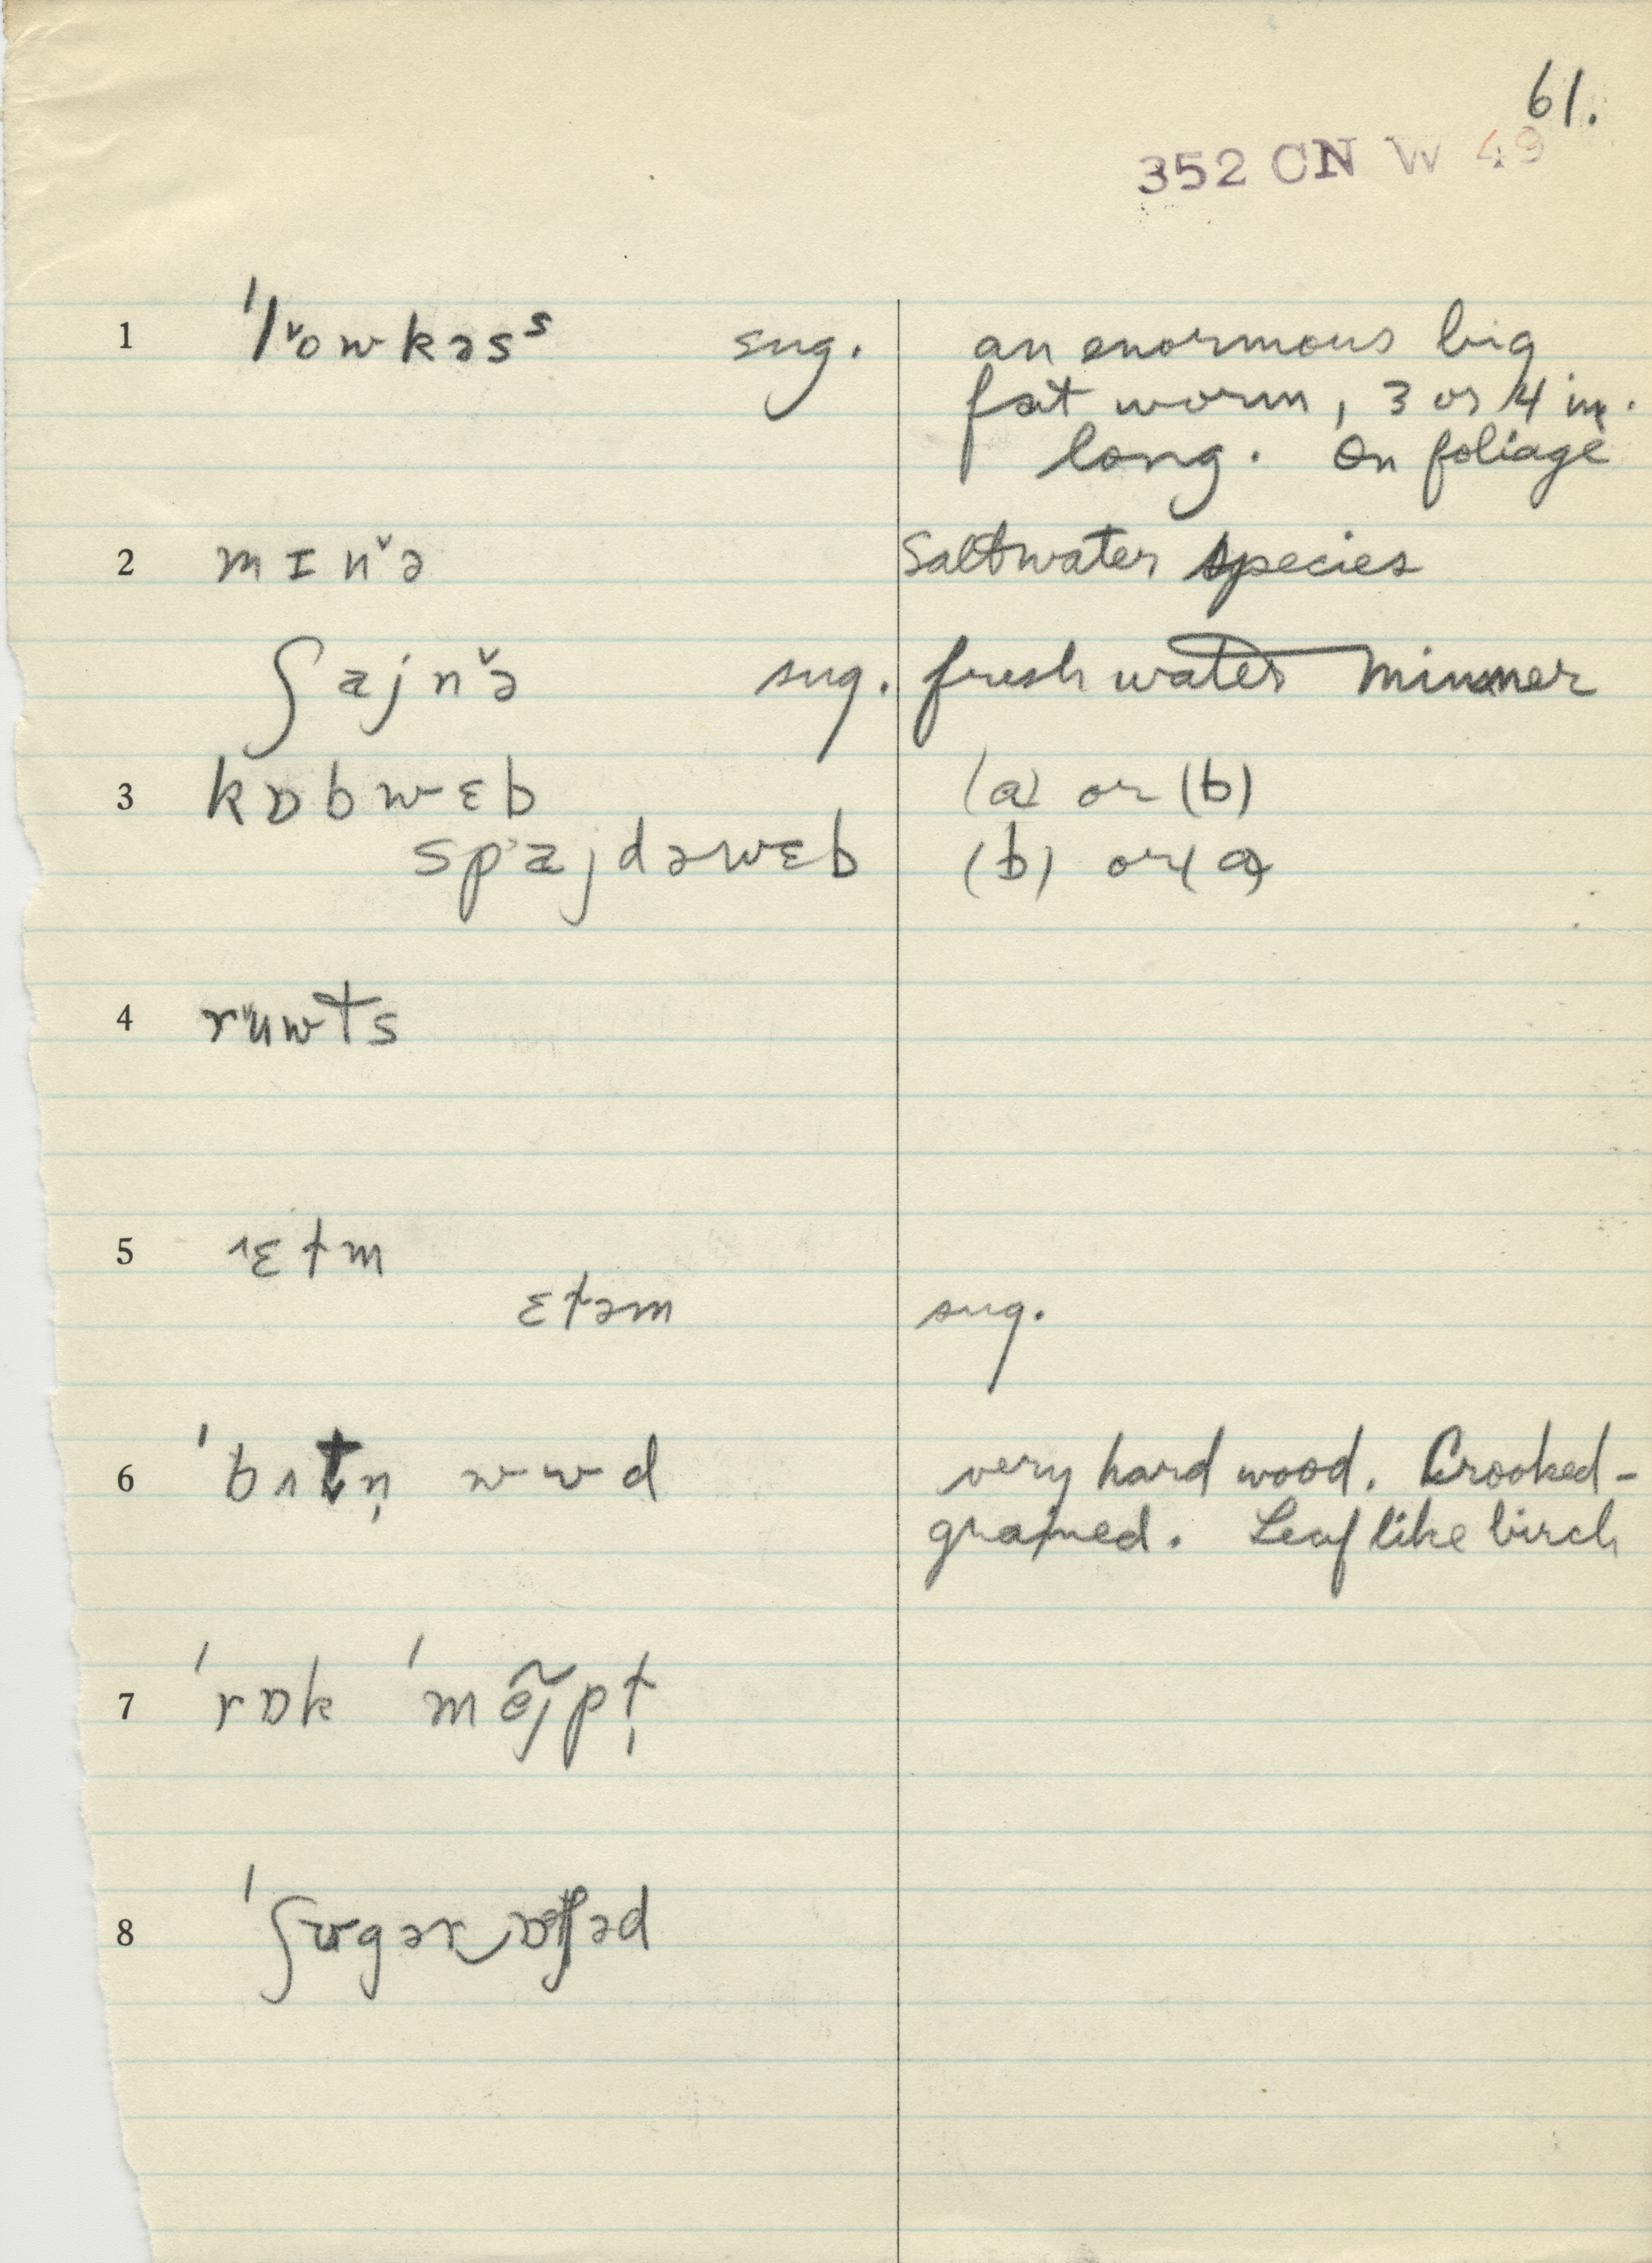 61.
352 CN W 49
1 ˈl˅owkəsˢ sug. an enormous big
fat worm, 3 or 4 in.
long. On foliage
2 mɪn˅ə Saltwater species
ʃajn˅ə sug. freshwater minner
3 kɒbwɛb (a) or (b)
spˈajdəwɛb (b) or (a)
4 r˅uwts
5 ˄ɛtm
ɛtəm sug.
6 ˈbʌtn̩ wʊd very hard wood. Crooked-
grained. Leaf like birch
7 ˈrɒk ˈmẽj̃pt̩
8 ˈʃʊgər‿ɒtʃəd